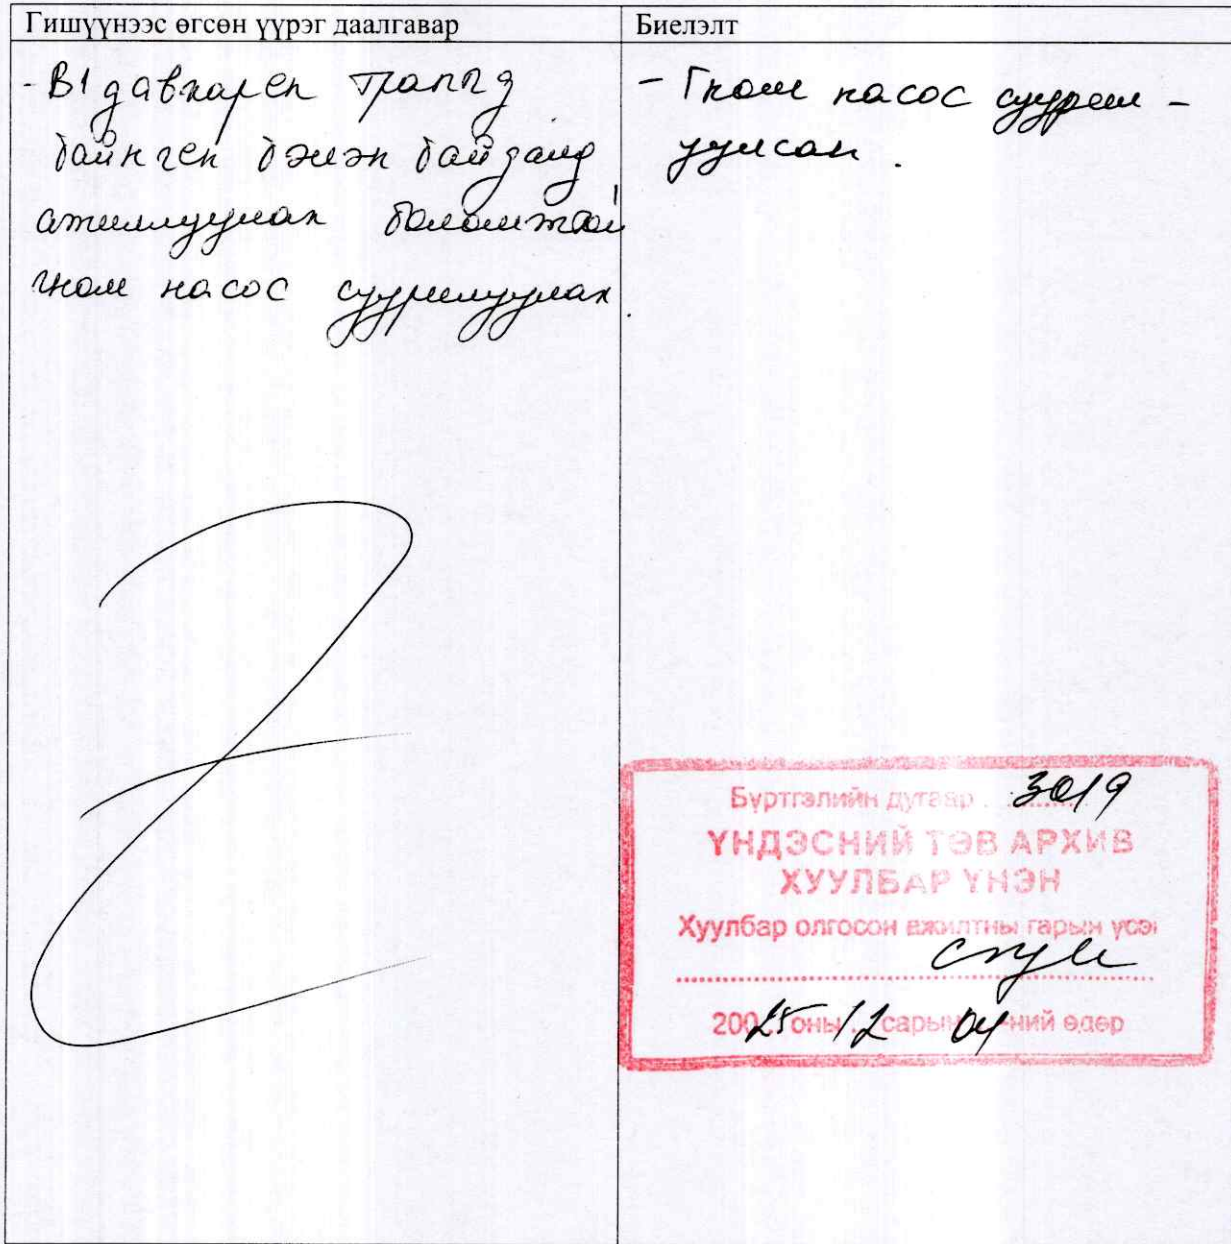 Гишүүнээс өгсөн үүрэг даалгавар
- В1 давхарын трапд
байнгын бэлэн байдалд
ажиллуулах боломжтой
гном насос суурилуулах.
Биелэлт
- Гном насос суурил-
уулсан.
Бүртгэлийн дугаар 3019
ҮНДЭСНИЙ ТӨВ АРХИВ
ХУУЛБАР ҮНЭН
Хуулбар олгосон ажилтны гарын үсэг
2025 оны 12 сарын 04-ний өдөр